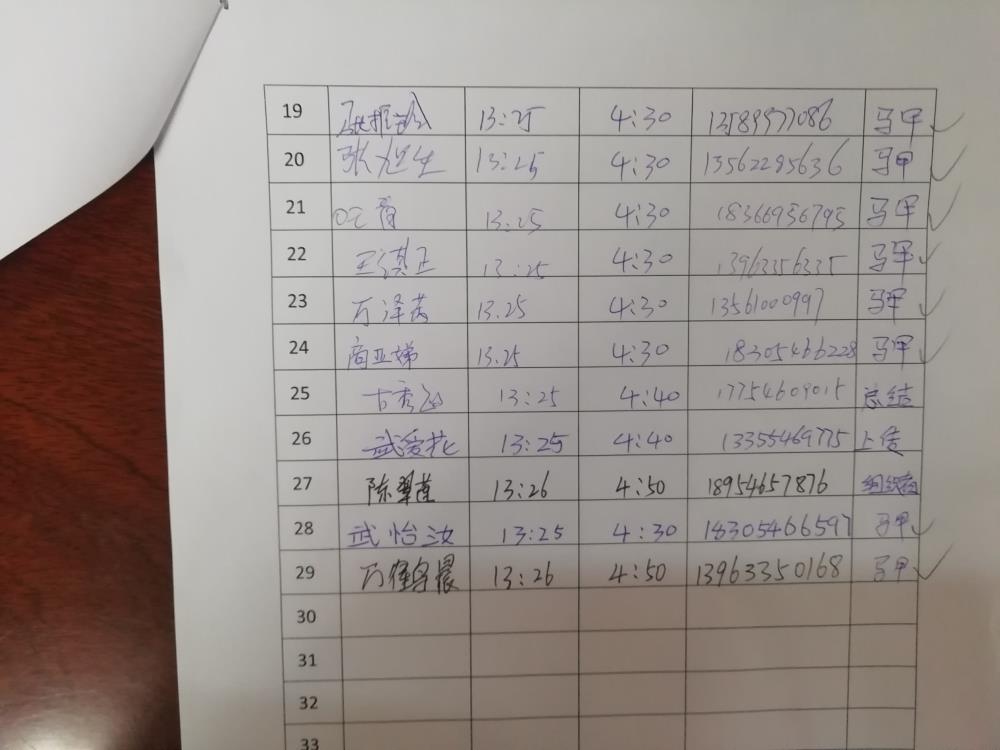 19 13:25 4:30 13589977086 马甲
20 张旭生 13:25 4:30 13562295636 马甲
21 13:25 4:30 18366956795 马甲
22 王洪正 13:25 4:30 13963356335 马甲
23 万泽茜 13.25 4:30 13561000997 马甲
24 商亚娣 13.25 4:30 18305466228 马甲
25 古秀 13:25 4:40 17754609015 总结
26 武爱花 13:25 4:40 13355469775 上传
27 陈翠莲 13:26 4:50 18954657876 组织者
28 武怡汝 13:25 4:30 18305466597 马甲
29 13:26 4:50 13963350168 马甲
30
31
32
33